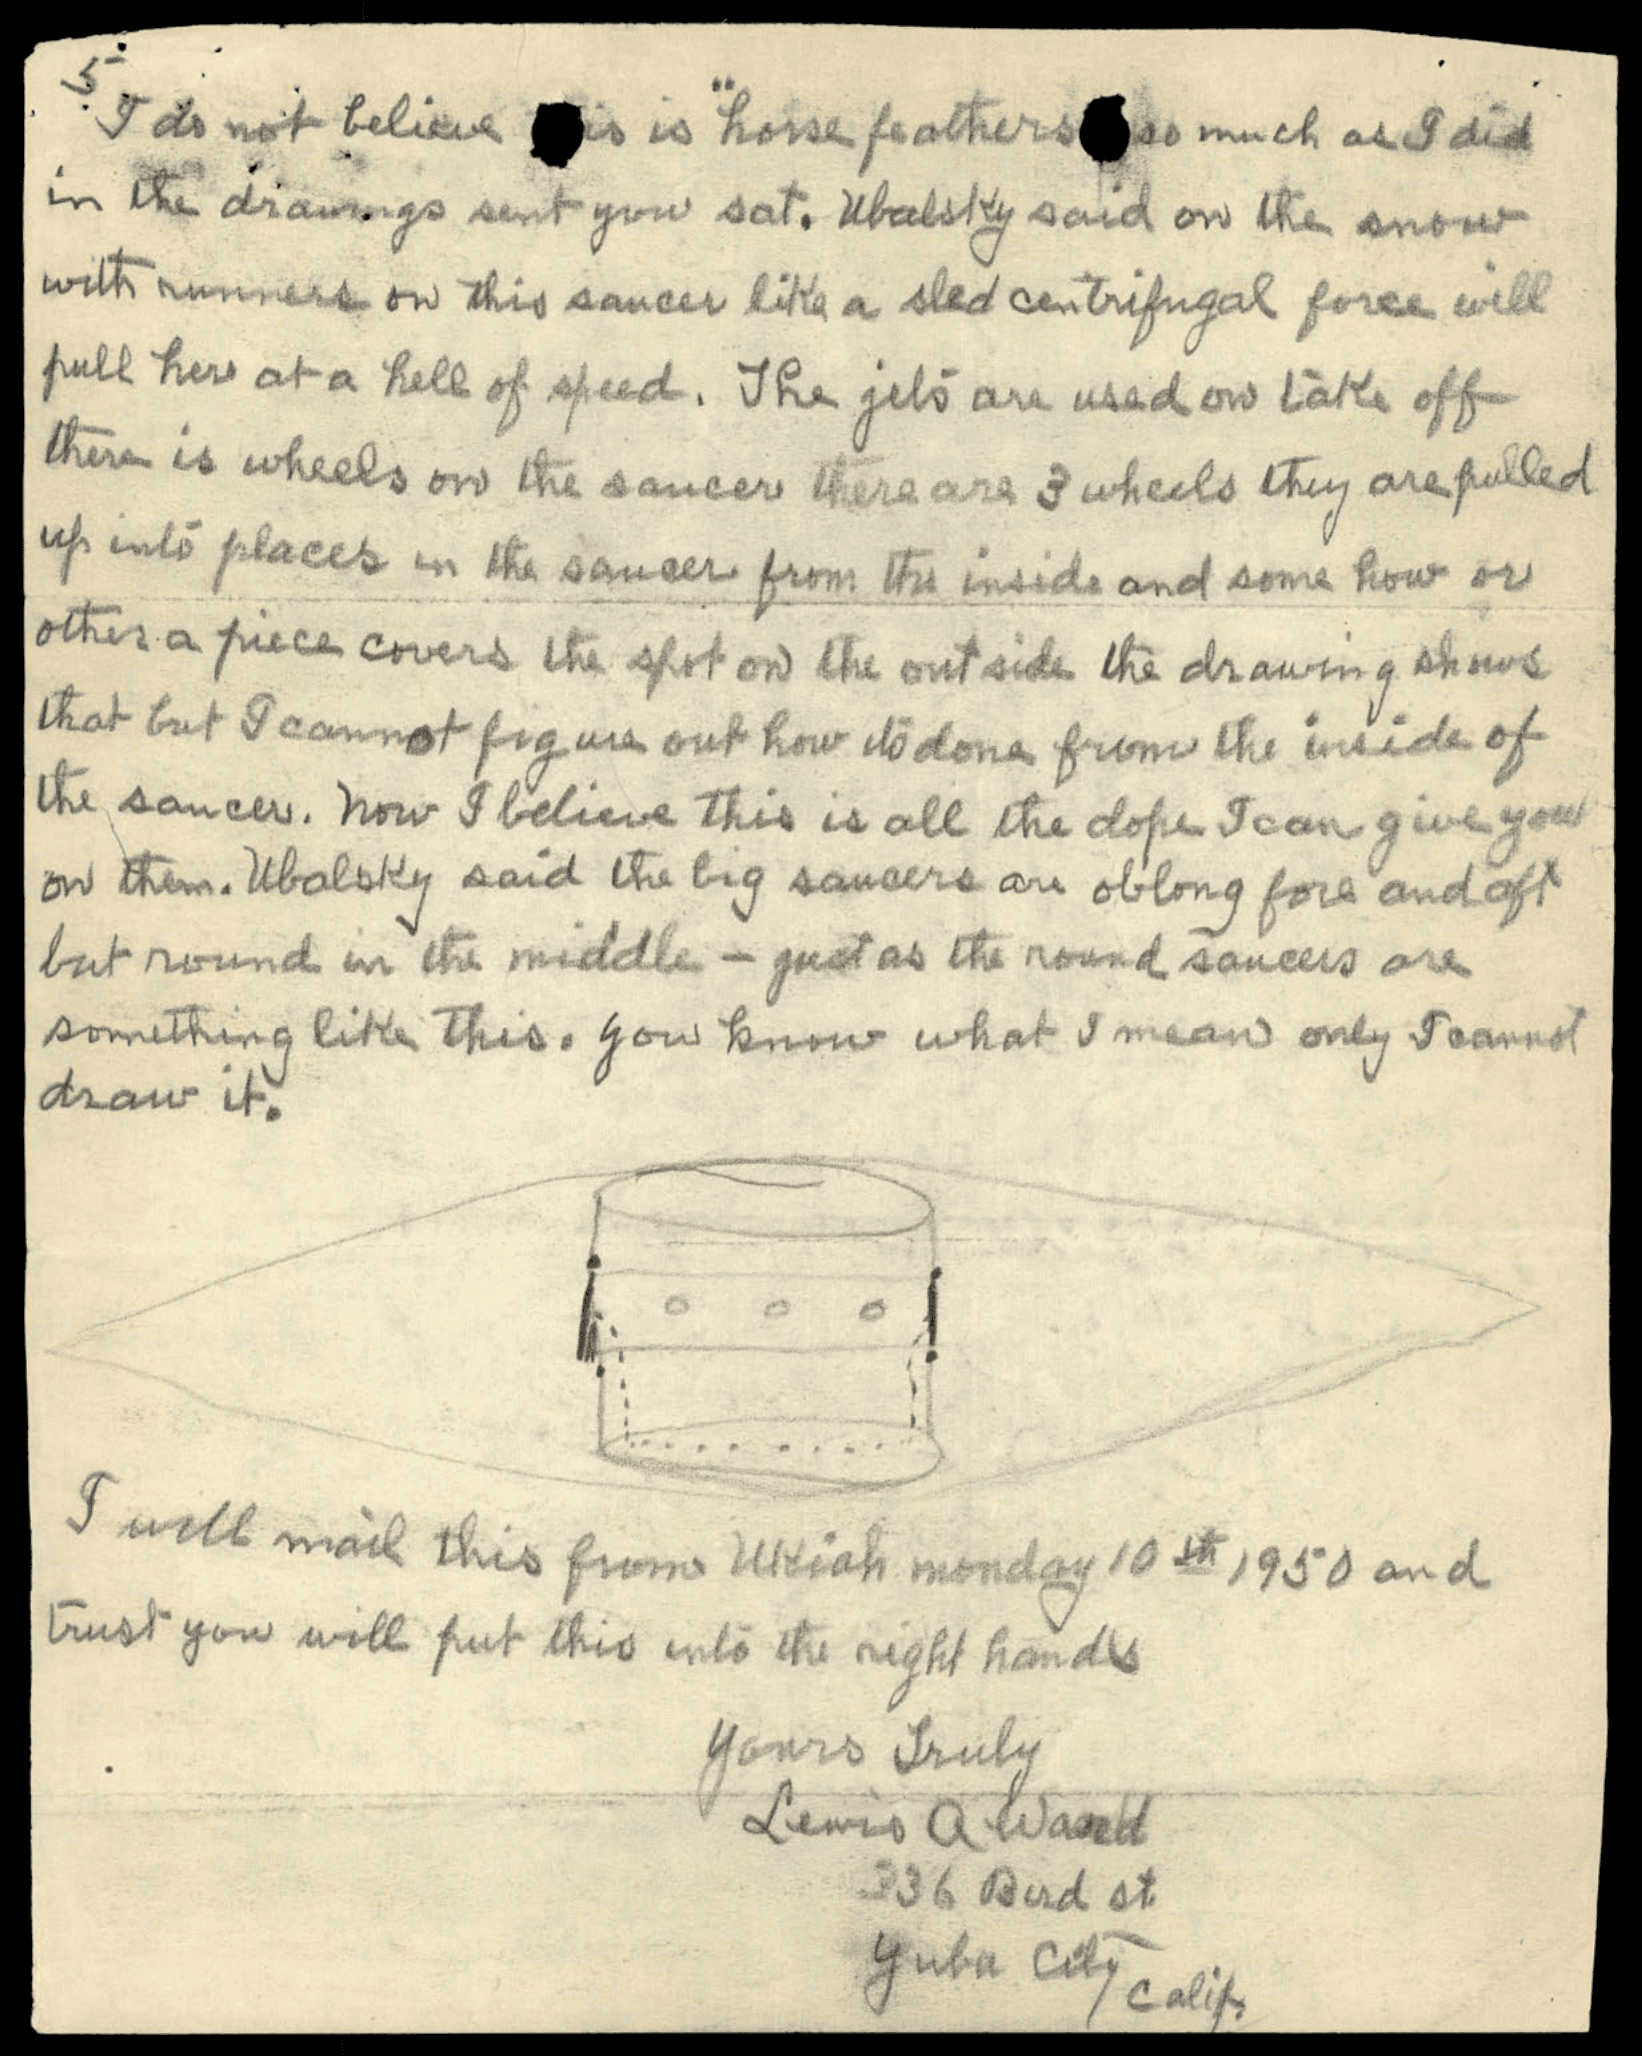 5
I do not believe is is "horse feathers so much as I did
in the drawings sent you sat. Ubalsky said on the snow
with runners on this saucer like a sled centrifugal force will
pull her at a hell of speed. The jets are used on take off
there is wheels on the saucer there are 3 wheels they are pulled
up into places in the saucer from the inside and some how or
other a piece covers the spot on the outside the drawing shows
that but I cannot figure out how its done from the inside of
the saucer. Now I believe this is all the dope I can give you
on them. Ubalsky said the big saucers are oblong fore and aft
but round in the middle – just as the round saucers are
something like this. You know what I mean only I cannot
draw it.
I will mail this from Ukiah monday 10th 1950 and
trust you will put this into the right hands
Yours Truly
Lewis A Ward
336 Bird st
Yuba City
Calif.